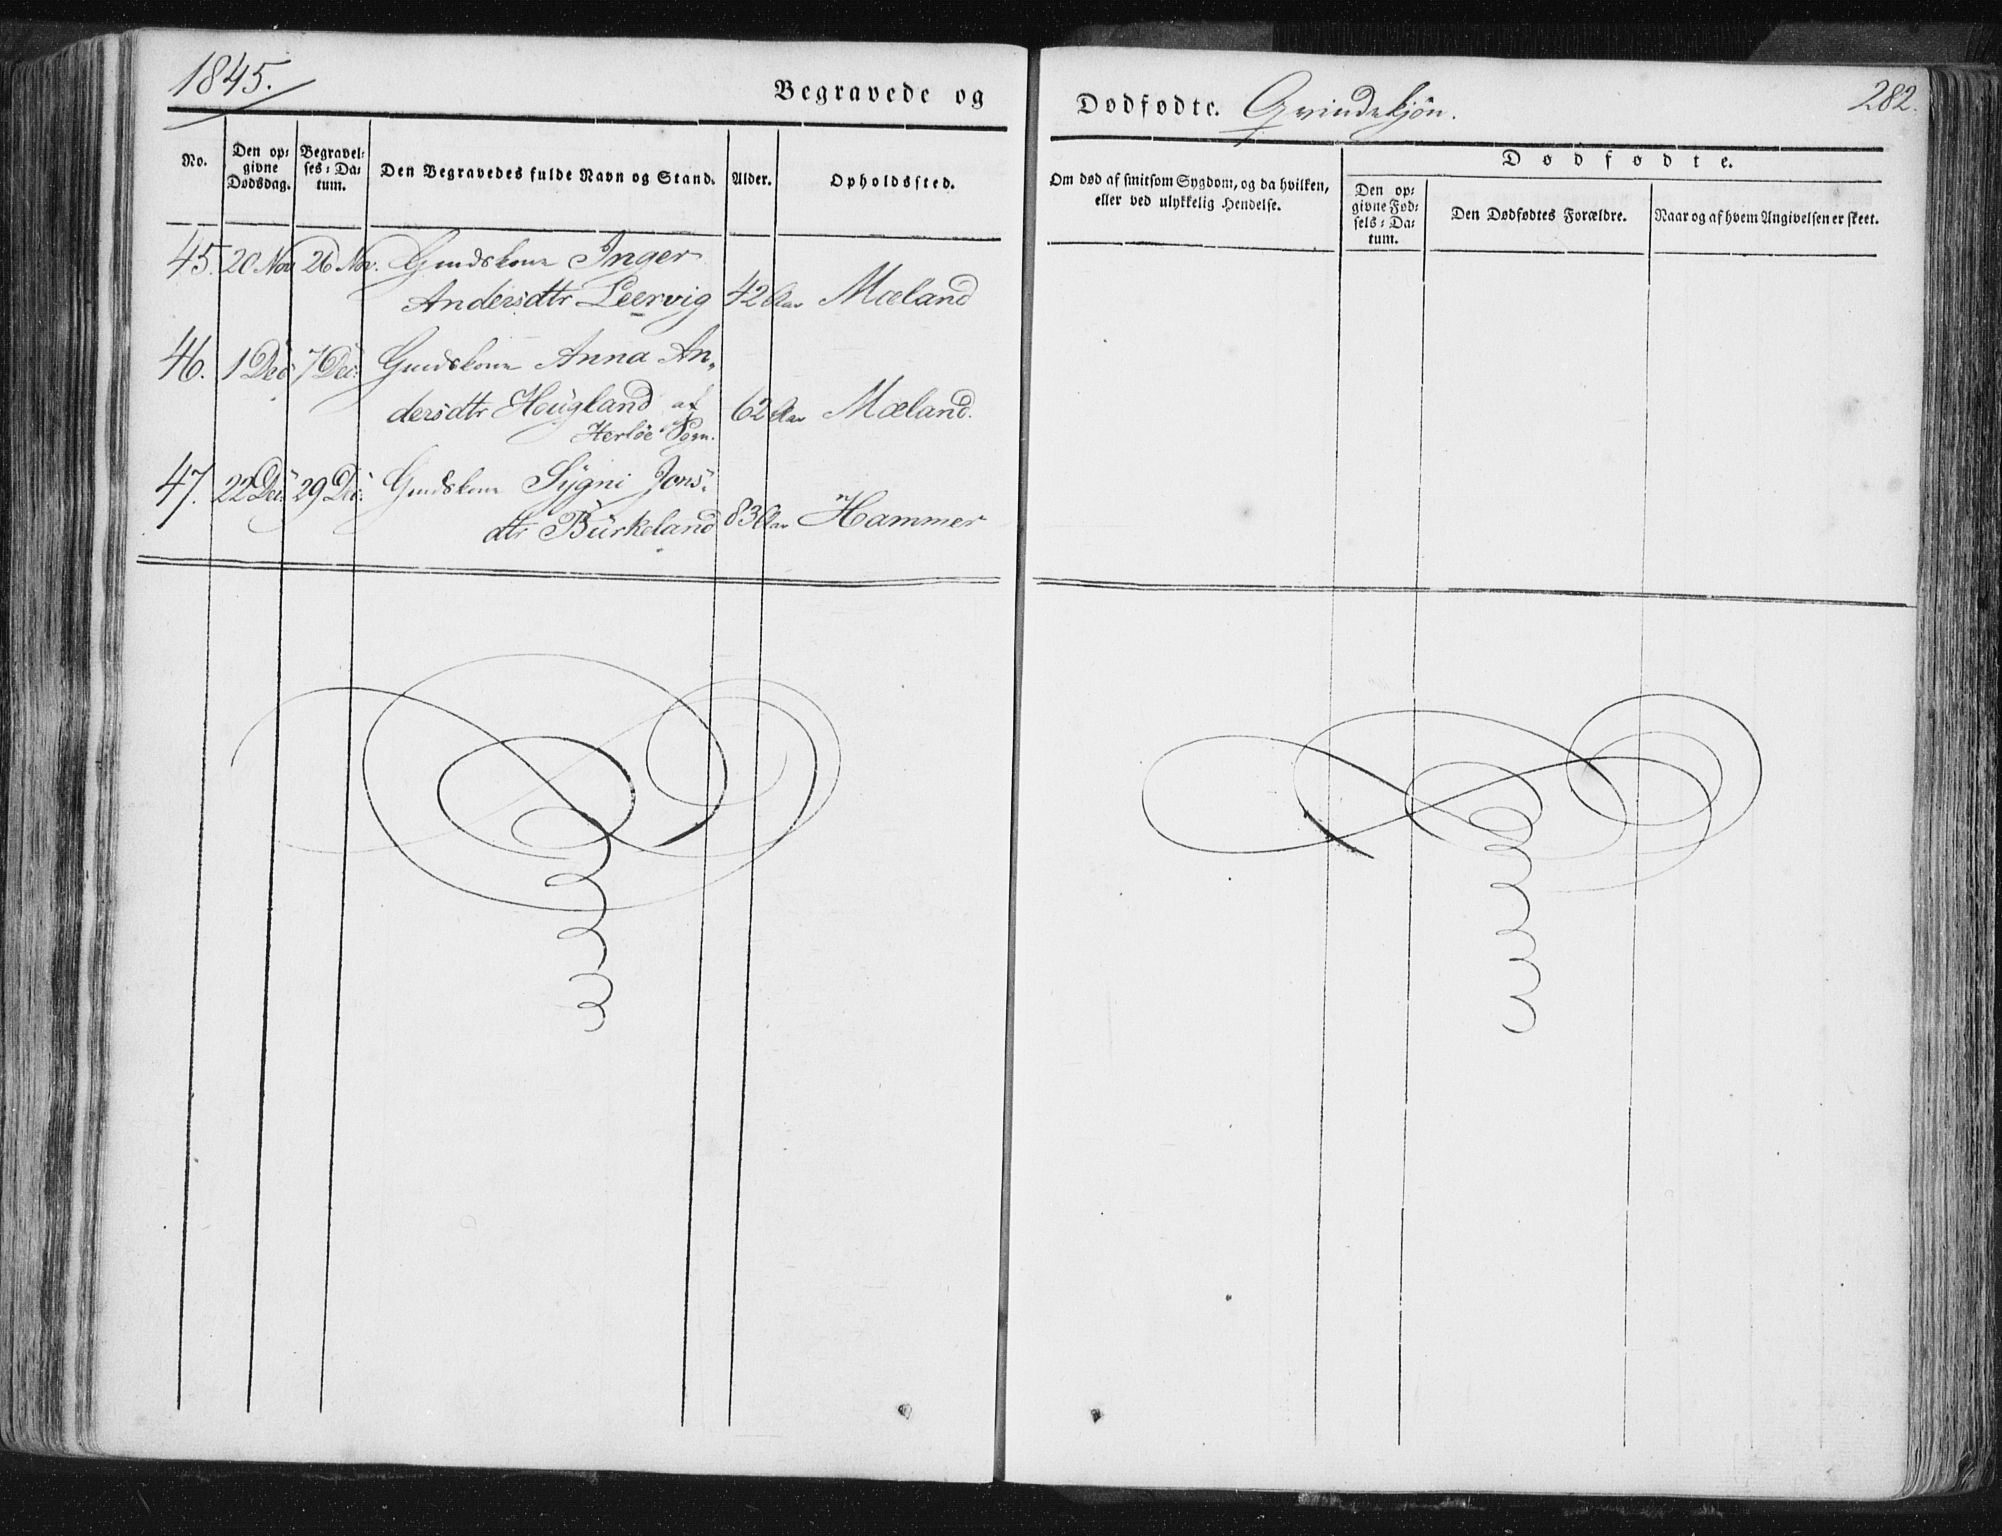 1845.
Begravede og
No.
Den op-
givne
Dødsdag.
Begravel-
ses-Da-
tum.
Den Begravedes fulde Navn og Stand.
Alder.
Opholdssted.
45. 20 Nov 26 Nov. Gmdskone Inger
Andersdtr Leervig 42 Aar Mæland
46. 1 Dec 7 Dec: Gmdskone Anna An-
dersdtr Hougland af 62 Aar Mæland.
Herløe Sogn.
47. 22 Dec: 29 Dec: Gmdskone Sygni Jons-
dtr Bürkeland 83 Aar Hammer
Dødfødte. Qvindekjøn.
282.
Om død af smitsom Sygdom, og da hvilken,
eller ved ulykkelig Hendelse.
Dødfødte.
Den op-
givne Fød-
sels-Da-
tum.
Den Dødfødtes Forældre.
Naar og af hvem Angivelsen er skeet.